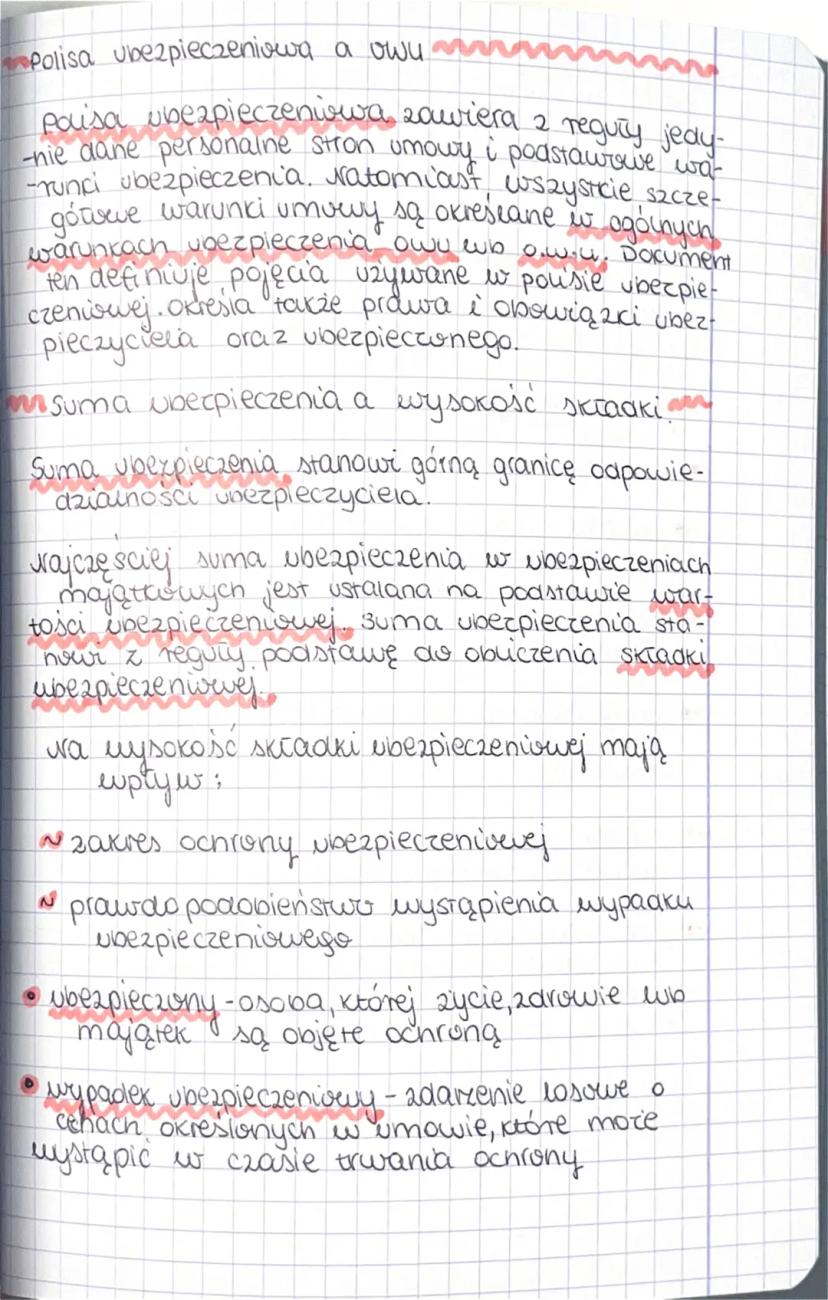 Polisa ubezpieczeniowa a owu
Polisa ubezpieczeniowa zawiera z reguły jedy-
-nie dane personalne stron umowy i podstawowe wa-
-runki ubezpieczenia. Natomiast, wszystkie szcze-
gółowe warunki umowy są określane w ogólnych
warunkach ubezpieczenia owu lub o.w.u. Dokument
ten definiuje pojęcia używane w polisie ubezpie-
czeniowej. Określa także prawa i obowiązki ubez-
pieczyciela oraz ubezpieczonego.
Suma ubezpieczenia a wysokość składki.
Suma ubezpieczenia stanowi górną granicę odpowie-
dzialności ubezpieczyciela.
Najczęściej suma ubezpieczenia w ubezpieczeniach
majątkowych jest ustalana na podstawie war-
tości ubezpieczeniowej. Suma ubezpieczenia sta-
nowi z reguły podstawę do obliczenia składki
ubezpieczeniowej.
Na wysokość składki ubezpieczeniowej mają
wpływ:
~ zakres ochrony ubezpieczeniowej
~ prawdopodobieństwo wystąpienia wypadku
ubezpieczeniowego
• ubezpieczony - osoba, której życie, zdrowie lub
majątek są objęte ochroną
• wypadek ubezpieczeniowy - zdarzenie losowe o
cehach określonych w umowie, które może
wystąpić w czasie trwania ochrony